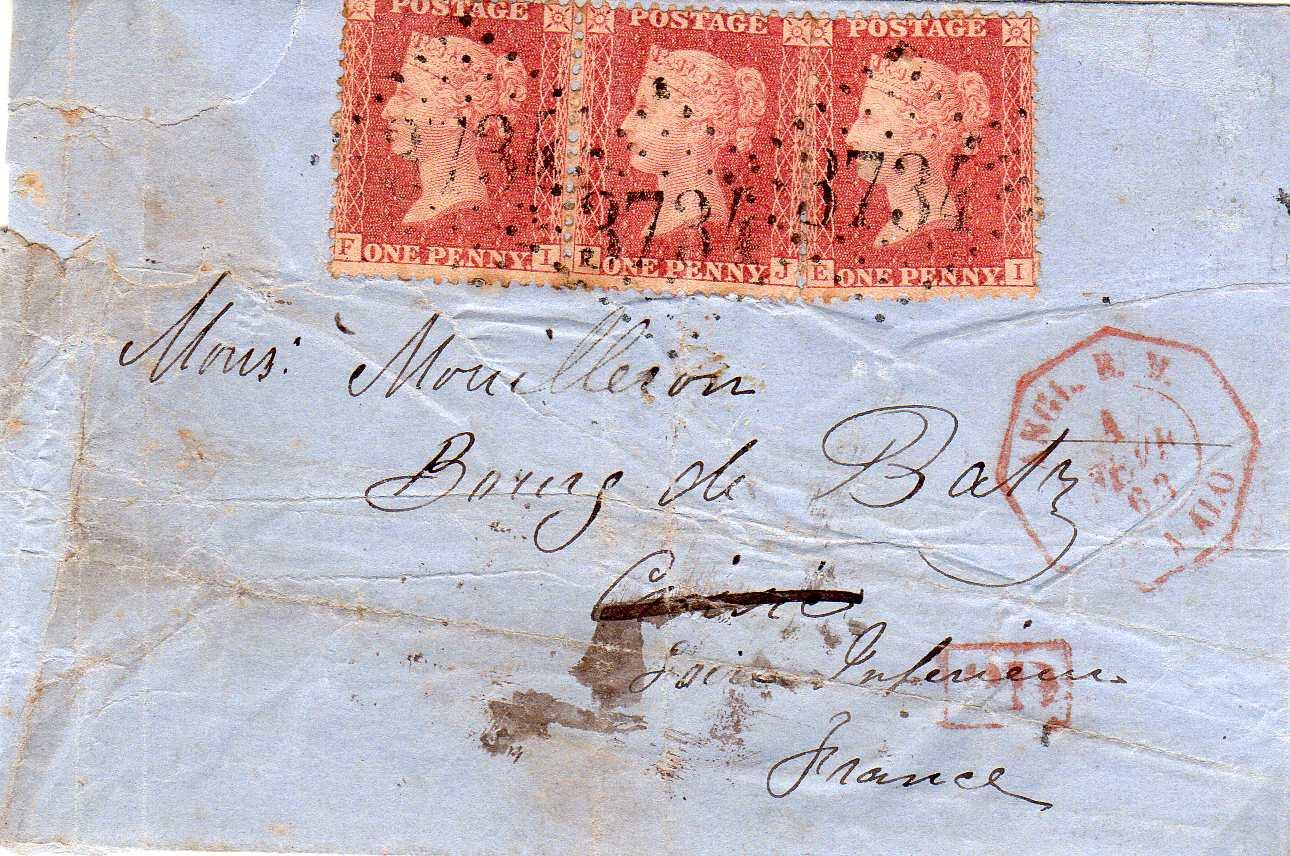 POSTAGE POSTAGE POSTAGE
3734 3734 3734
F ONE PENNY I R ONE PENNY J E ONE PENNY I
Mons: Mouilleron
Bourg de Batz
Loire Inferieure
France
ANGL. B. M.
1
63
A CALAIS
PD